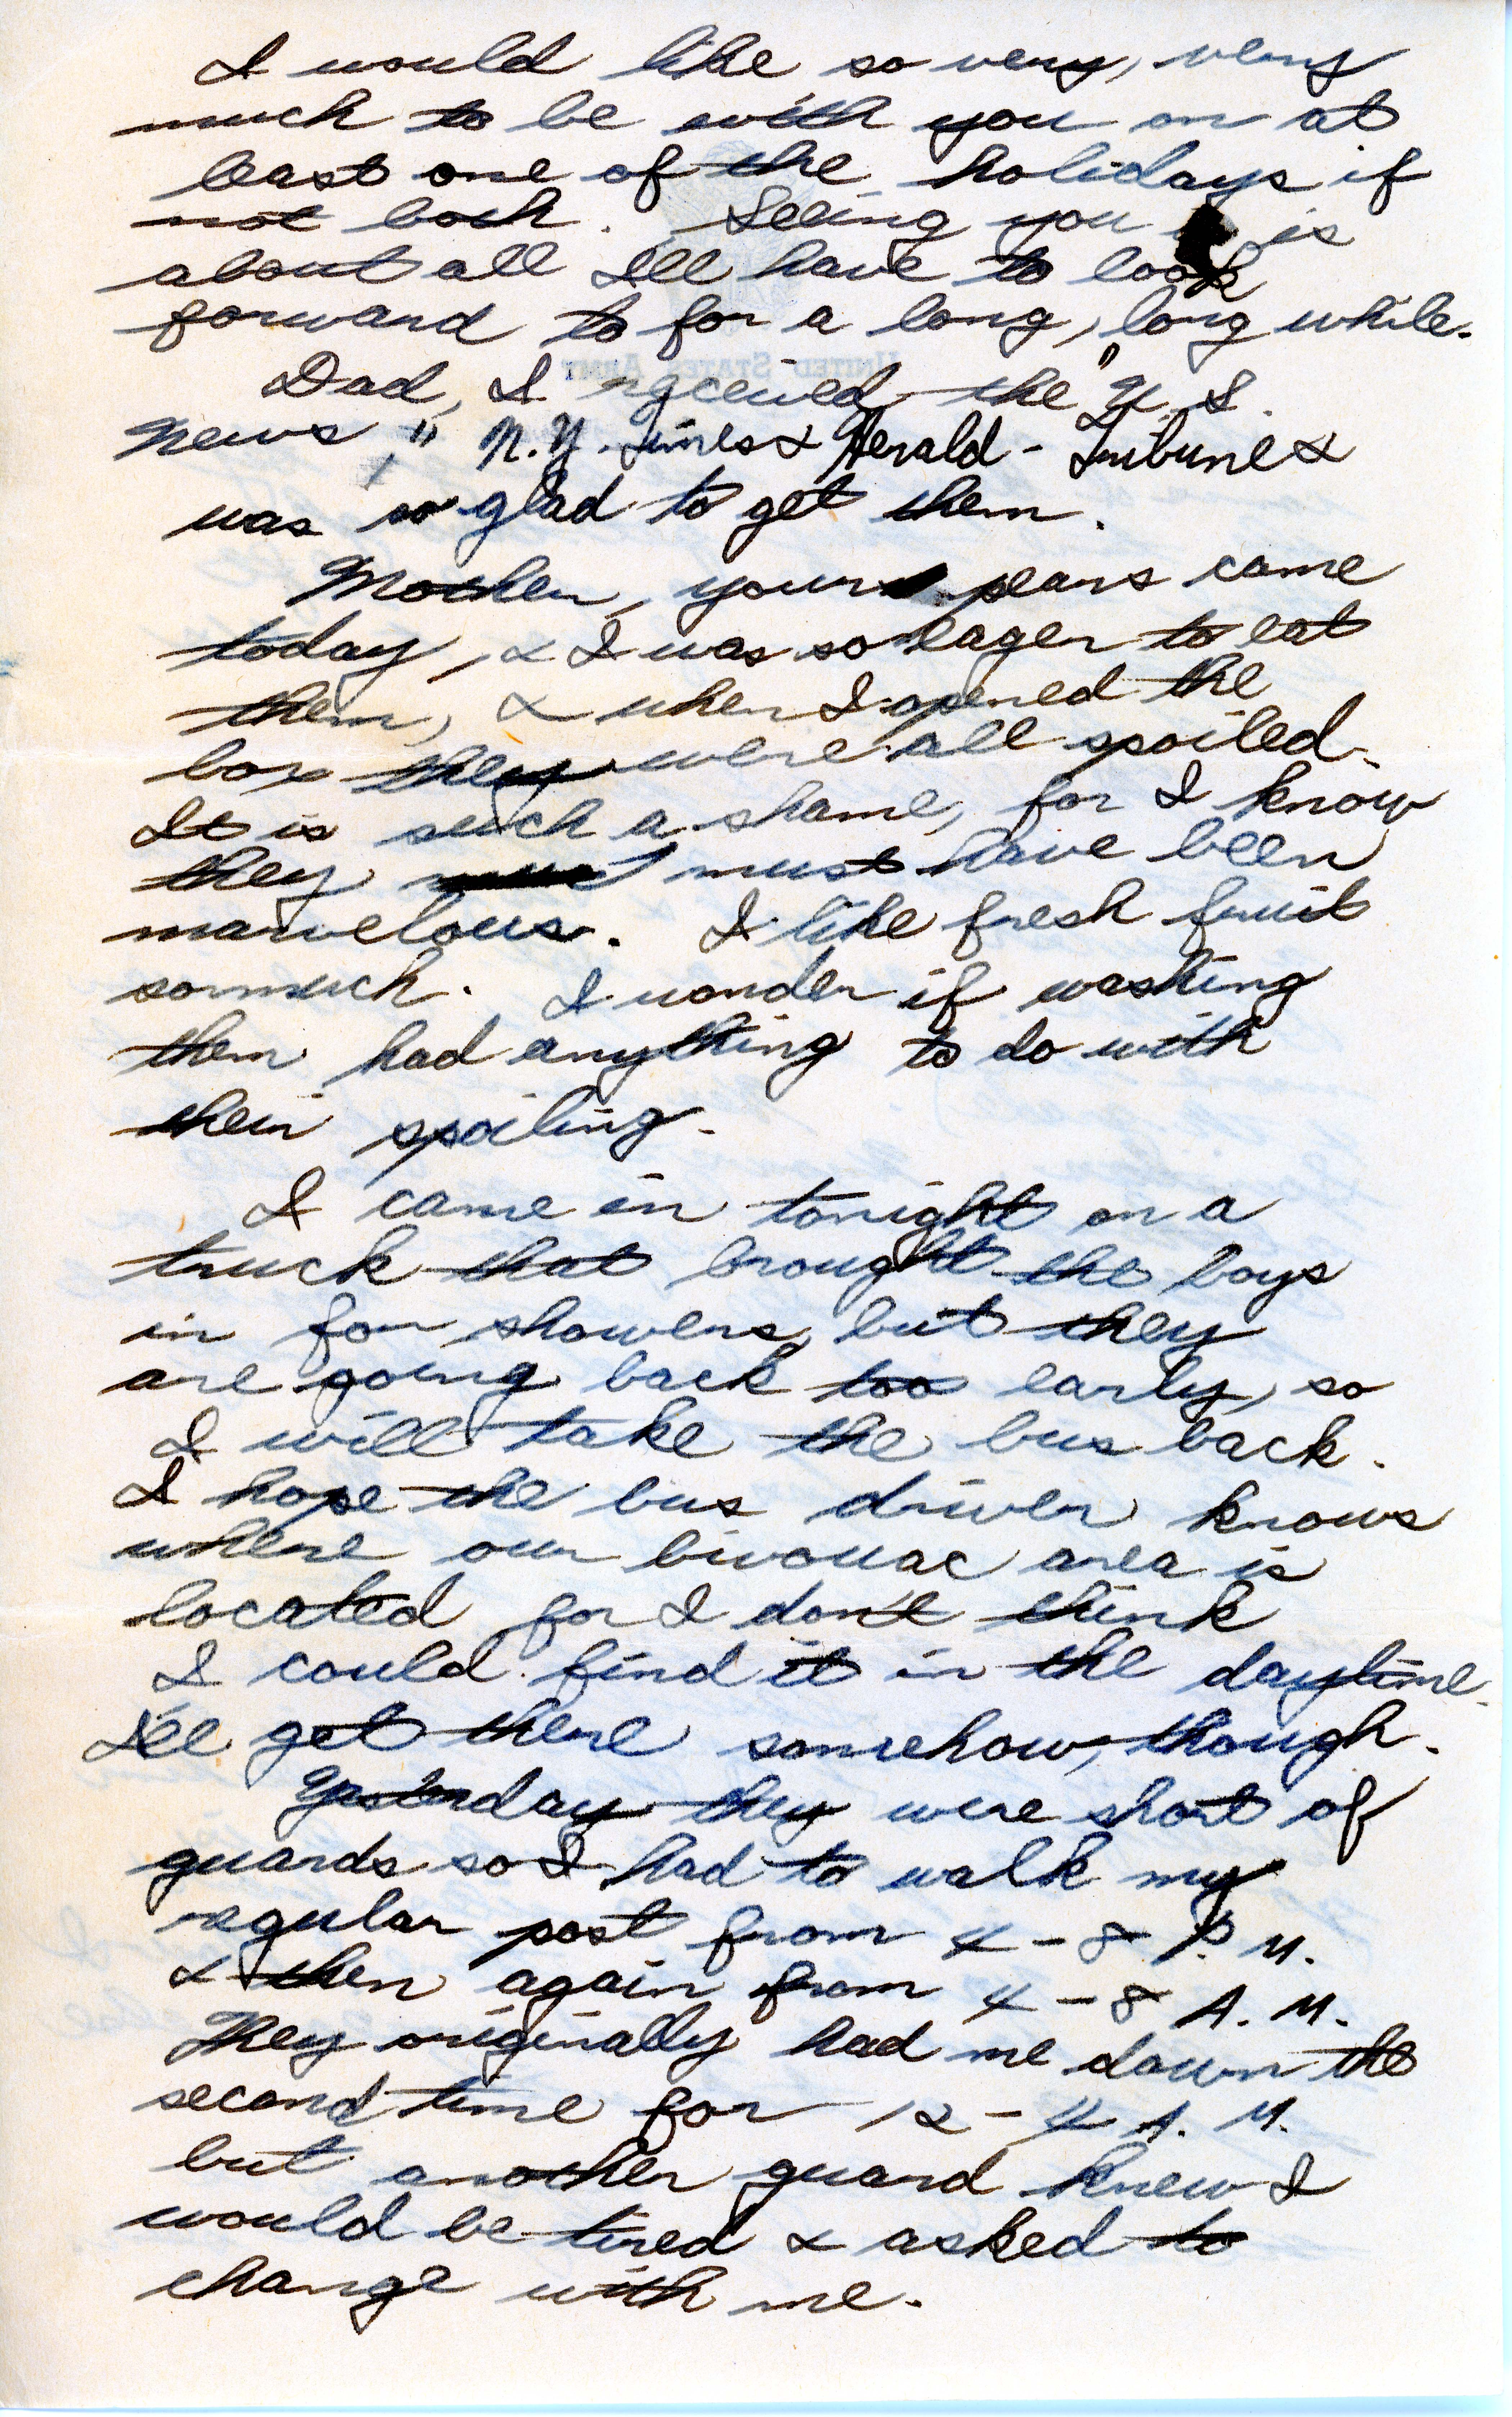 I would like so very, very
much to be with you on at
least one of the holidays if
not both. Seeing you is
about all I'll have to look
forward to for a long, long while.
UNITED STATES ARMY
Dad, I received the "U.S.
News," N.Y. Times & Herald-Tribune &
was so glad to get them.
Mother, your pears came
today, & I was so eager to eat
them, & when I opened the
box they were all spoiled.
It is such a shame, for I know
they must have been
marvelous. I like fresh fruit
so much. I wonder if washing
them had anything to do with
their spoiling.
I came in tonight on a
truck that brought the boys
in for showers, but they
are going back too early, so
I will take the bus back.
I hope the bus driver knows
where our bivouac area is
located for I don't think
I could find it in the daytime.
I'll get there somehow, though.
Yesterday they were short of
guards so I had to walk my
regular post from 4-8 P.M.
& then again from 4-8 A.M.
They originally had me down the
second time for 12-4 A.M.
but another guard knew I
would be tired & asked to
change with me.